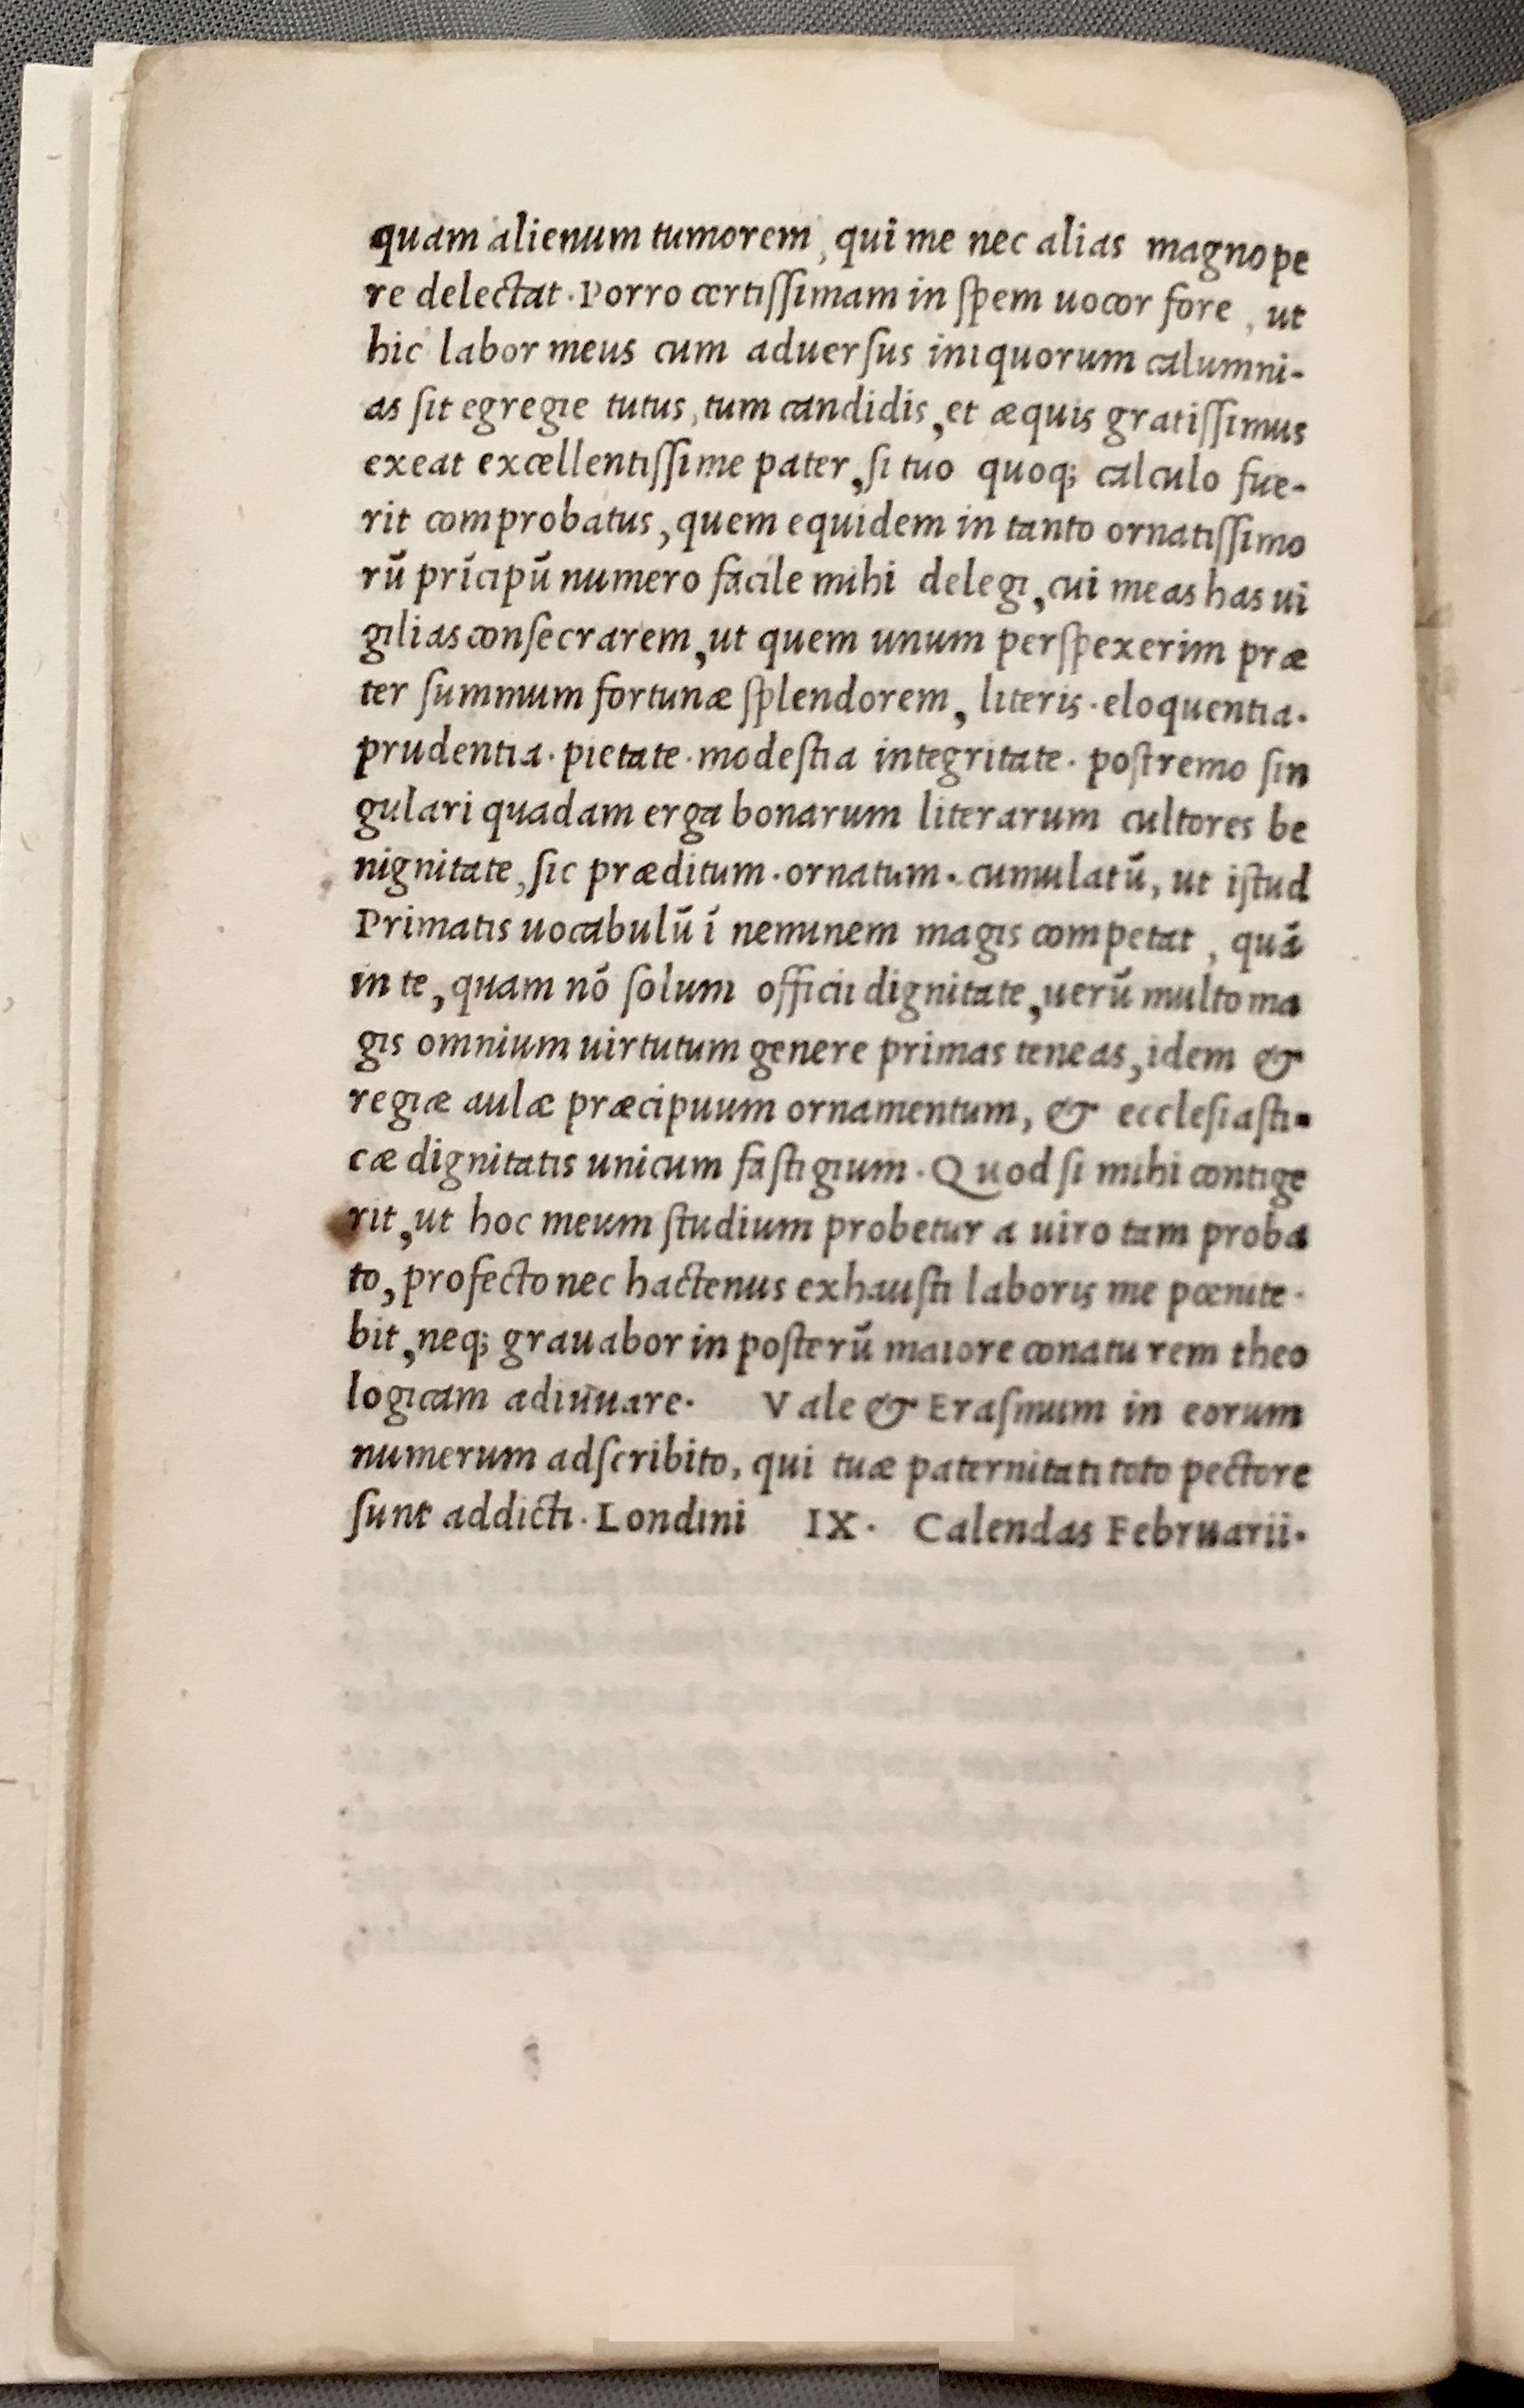 quam alienum tumorem, qui me nec alias magnope
re delectat. Porro certissimam in spem uocor fore, ut
hic labor meus cum aduersus iniquorum calumni-
as sit egregie tutus, tum candidis, et æquis gratissimus
exeat excellentissime pater, si tuo quoq; calculo fue-
rit comprobatus, quem equidem in tanto ornatissimo
rū prĩcipū numero facile mihi delegi, cui meas has ui
gilias consecrarem, ut quem unum perspexerim præ
ter summum fortunæ splendorem, literis. eloquentia.
prudentia. pietate. modestia integritate. postremo sin
gulari quadam erga bonarum literarum cultores be
nignitate, sic præditum. ornatum. cumulatū, ut istud
Primatis uocabulū ĩ neminem magis competat, quā
in te, quam nō solum officii dignitate, uerū multo ma
gis omnium uirtutum genere primas teneas, idem &
regiæ aulæ præcipuum ornamentum, & ecclesiasti-
cæ dignitatis unicum fastigium. Quod si mihi contige
rit, ut hoc meum studium probetur a uiro tam proba
to, profecto nec hactenus exhausti laboris me pœnite-
bit, neq; grauabor in posterū maiore conatu rem theo
logicam adiuuare. Vale & Erasmum in eorum
numerum adscribito, qui tuæ paternitati toto pectore
sunt addicti. Londini IX. Calendas Februarii.